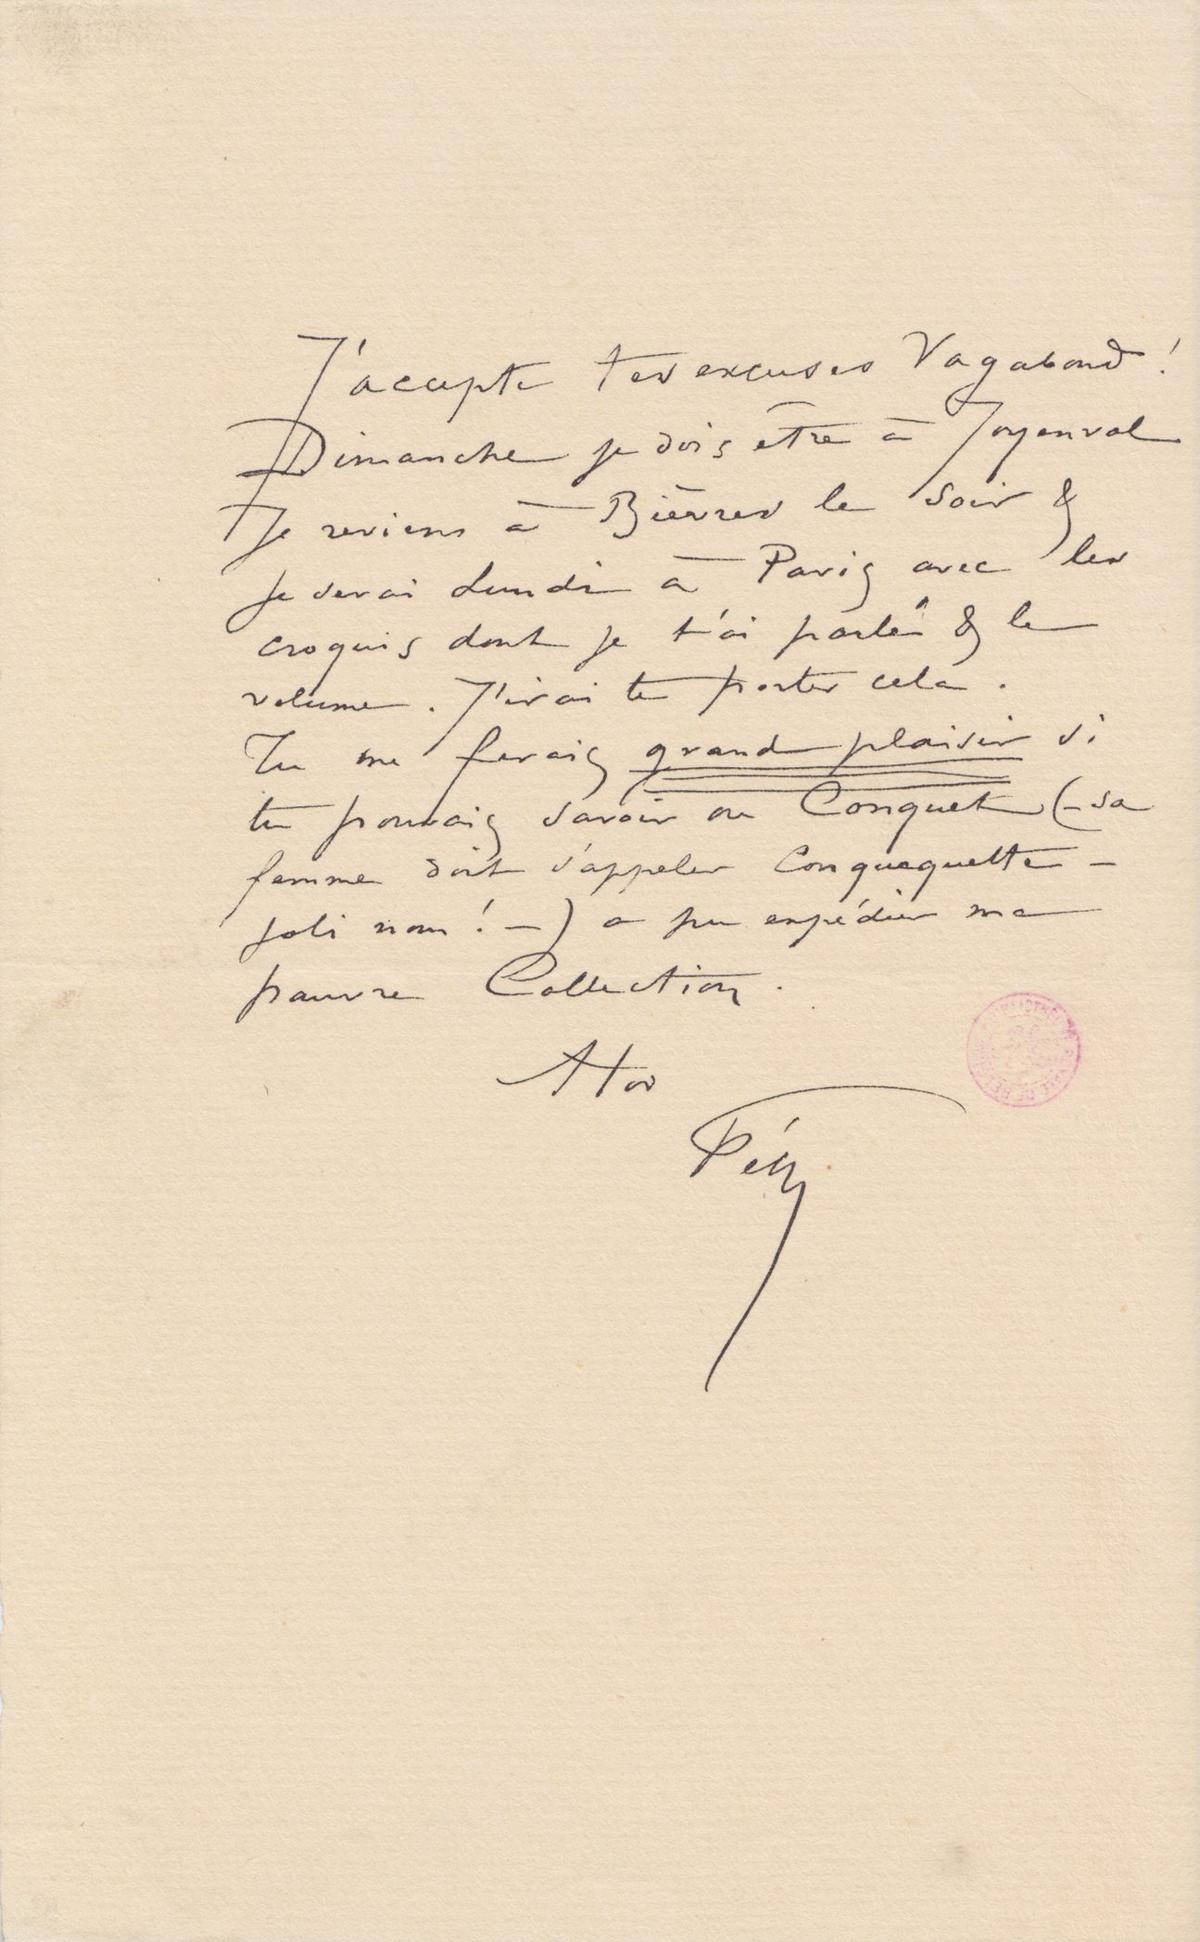 J'accepte tes excuses Vagabond !
Dimanche je dois être à Joyenval
Je reviens à Bièvres le soir &
je serai Lundi à Paris avec les
croquis dont je t'ai parlé & le
volume. J'irai te porter cela.
Tu me ferais grand plaisir si
tu pouvais savoir ou Conquet (– sa
femme doit s'appeler Conquequette –
joli nom ! –) a pu expédier ma
pauvre Collection.